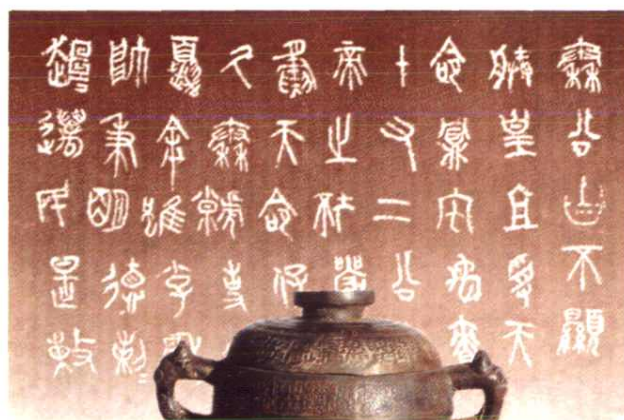 秦公曰不顯
朕皇且受天
命鼏宅禹賣
十又二公
帝之坯嚴
夤天命保
氒秦虩事
夏余雖小子穆
帥秉明德剌
趄邁民是敕